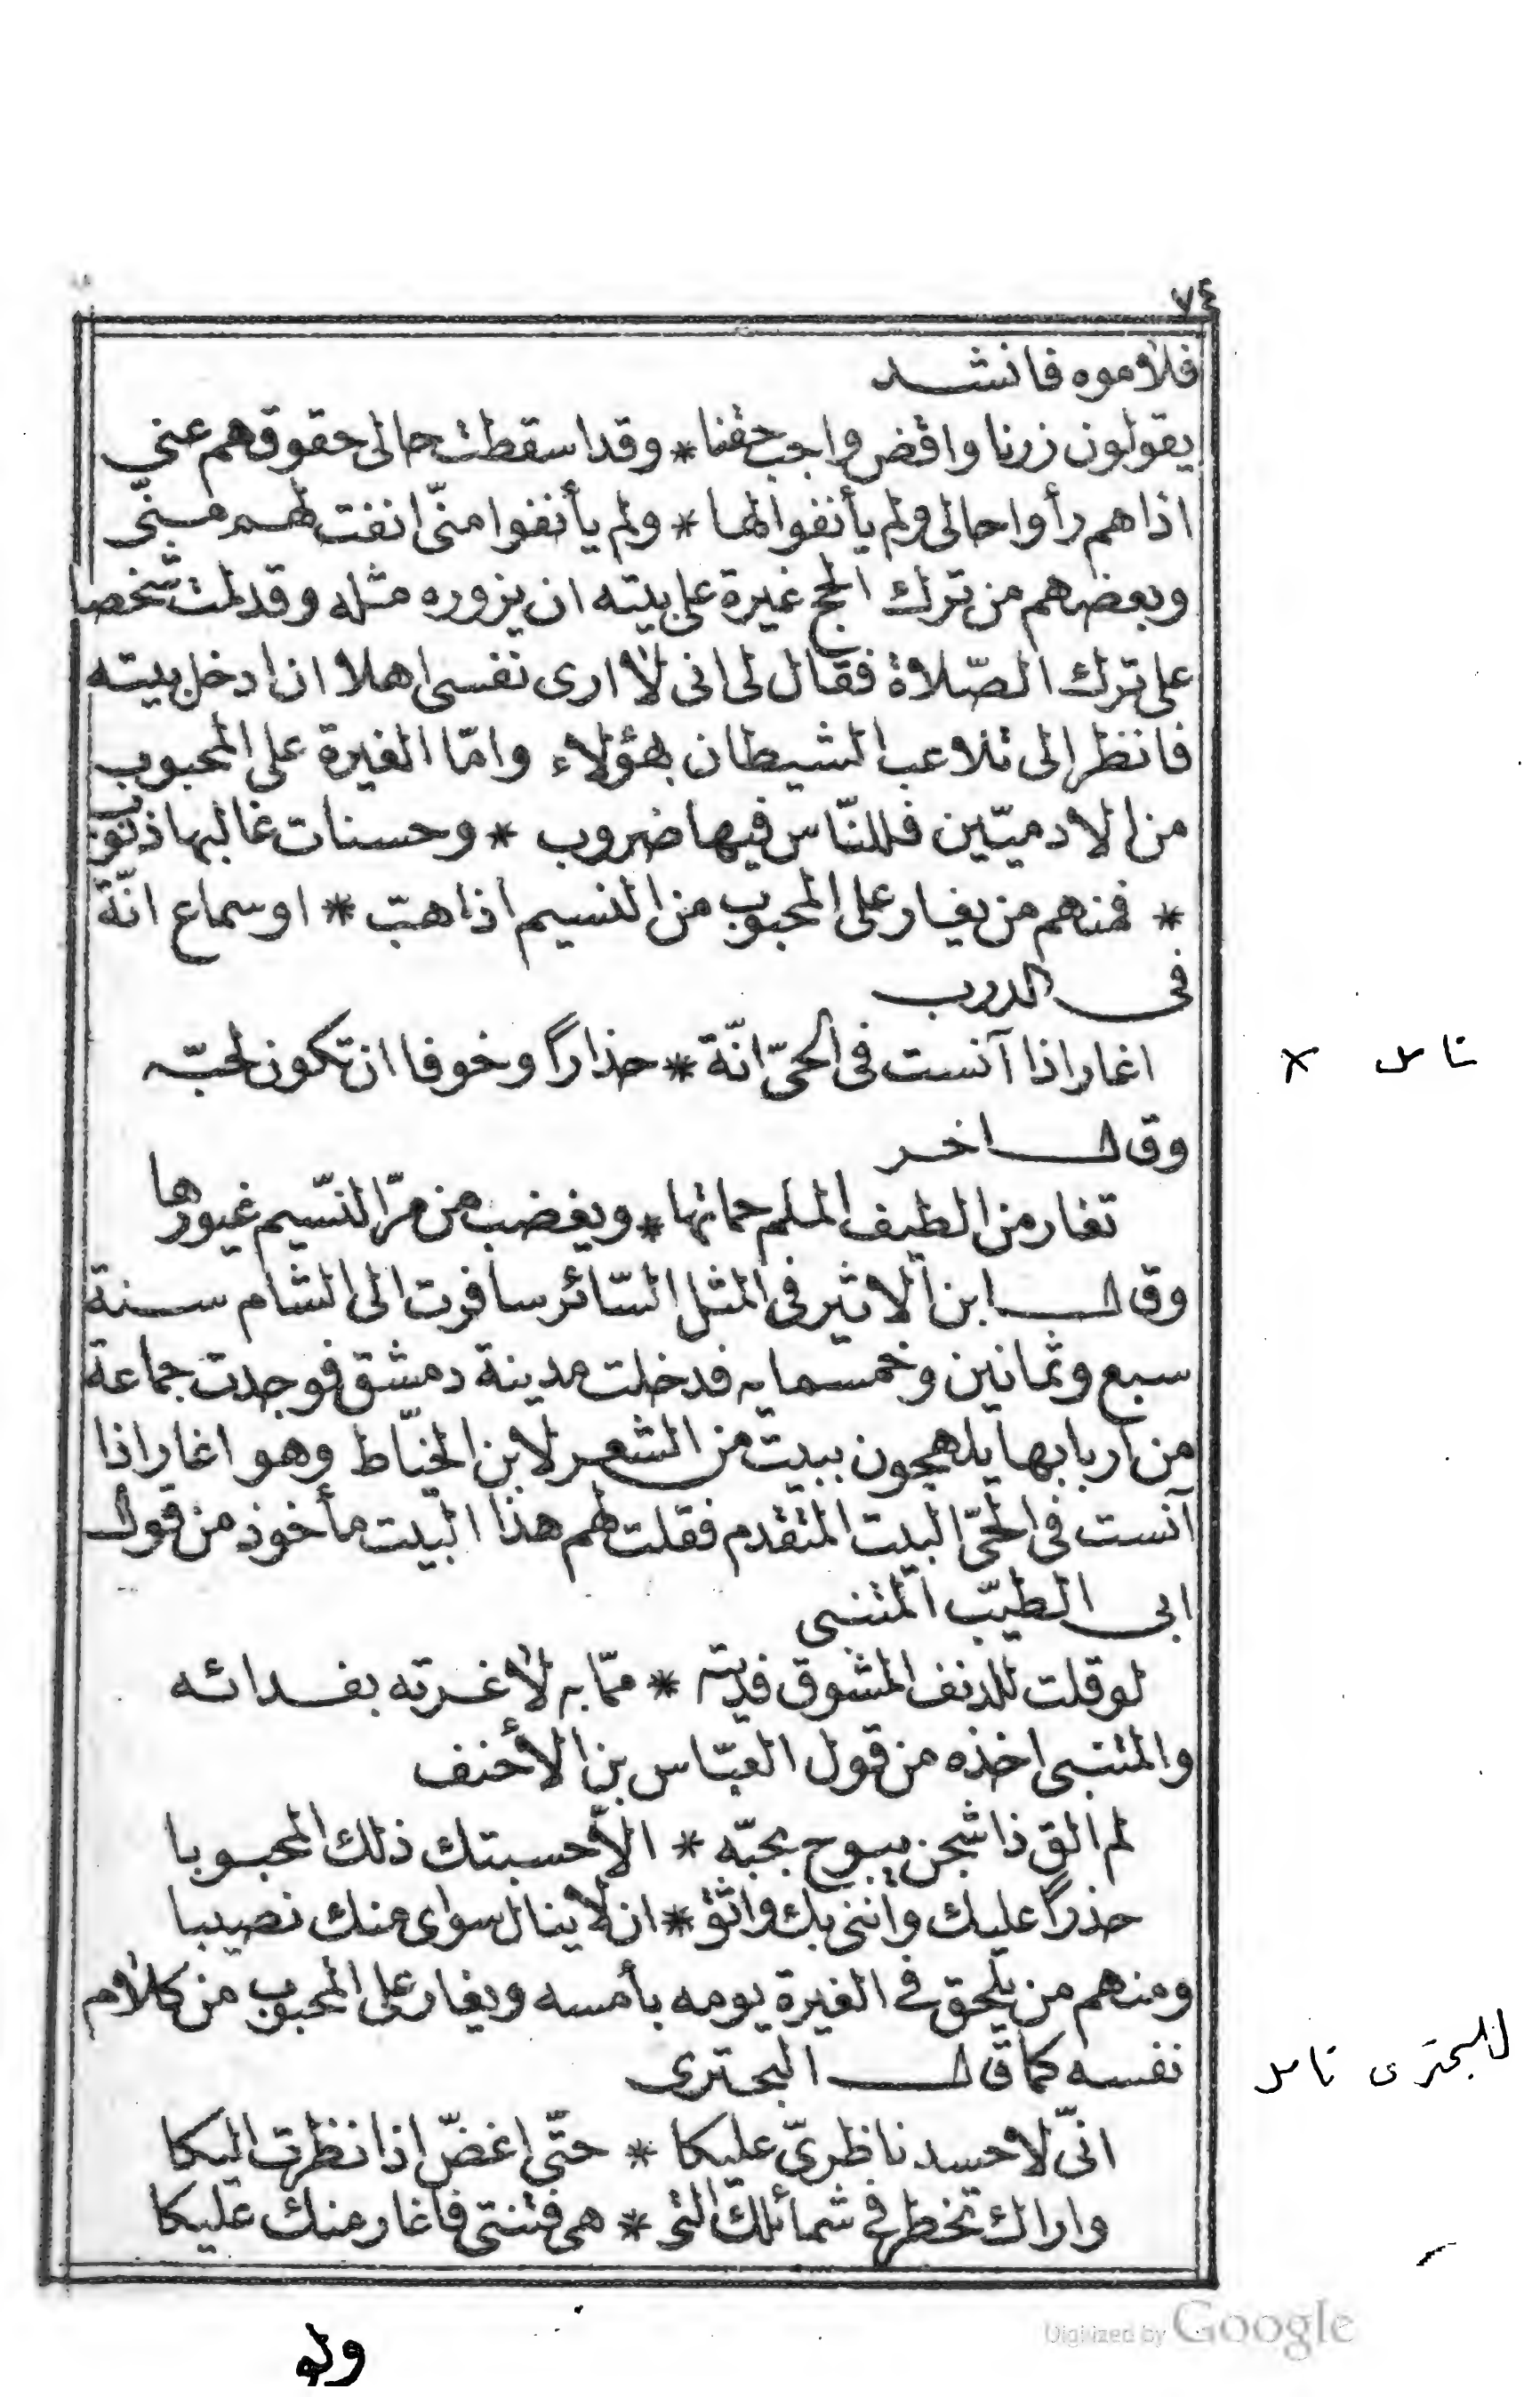 ٧٤
فلاموه فانشد
يقولون زرنا واقض واجب حقنا * وقد اسقطت حالى حقوقهم عنى
اذاهم رأوا حالى ولم يأنفوا لها * ولم يأنفوا منّى انفت لهم منّى
وبعضهم من ترك الحج غيرة على بيته ان يزوره مثله وقد لمت شخصا
على ترك الصّلاة فقال لى انى لا ارى نفسى اهلا ان ادخل بيته
فانظر الى تلاعب الشيطان بهؤلاء واما الغيرة على المحبوب
من الادميّين فللنّاس فيها ضروب * وحسنات غالبها ذنوب
* فمنهم من يغار على المحبوب من النسيم اذا هبّ * او سماع انّة
فى الدرب
اغار اذا آنست فى الحىّ انّة * حذاراً وخوفا ان تكون لحبّه
تامل ×
وقال اخر
تغار من الطيف الملم حماتها * ويغضب من مرّ النّسيم غيورها
وقال ابن الاثير فى المثل السّائر سافرت الى الشام سنة
سبع وثمانين وخمسمايه فدخلت مدينة دمشق فوجدت جماعة
من اربابها يلهجون ببيت من الشعر لابن الخيّاط وهو اغار اذا
آنست فى الحىّ البيت المتقدم فقلت لهم هذا البيت مأخوذ من قول
ابى الطيّب المتنبى
لو قلت للدنف المشوق فديته * ممّا به لاغرته بفدائه
والمتنبى اخذه من قول العبّاس بن الأحنف
لم الق ذا شجن يبوح بحبّه * الاّ حسبتك ذلك المحبوبا
حذراً عليك وأننى بك واثق * ان لا ينال سواى منك نصيبا
ومنهم من يلحق فى الغيرة يومه بأمسه ويغار على المحبوب من كلام
نفسه كما قال البحترى
للبحترى تامل
انّى لاحسد ناظرىّ عليكا * حتّى اغضّ اذا نظرت اليكا
واراك تخطر فى شمائلك التى * هى فتنتى فاغار منك عليكا
وله
Digitized by Google